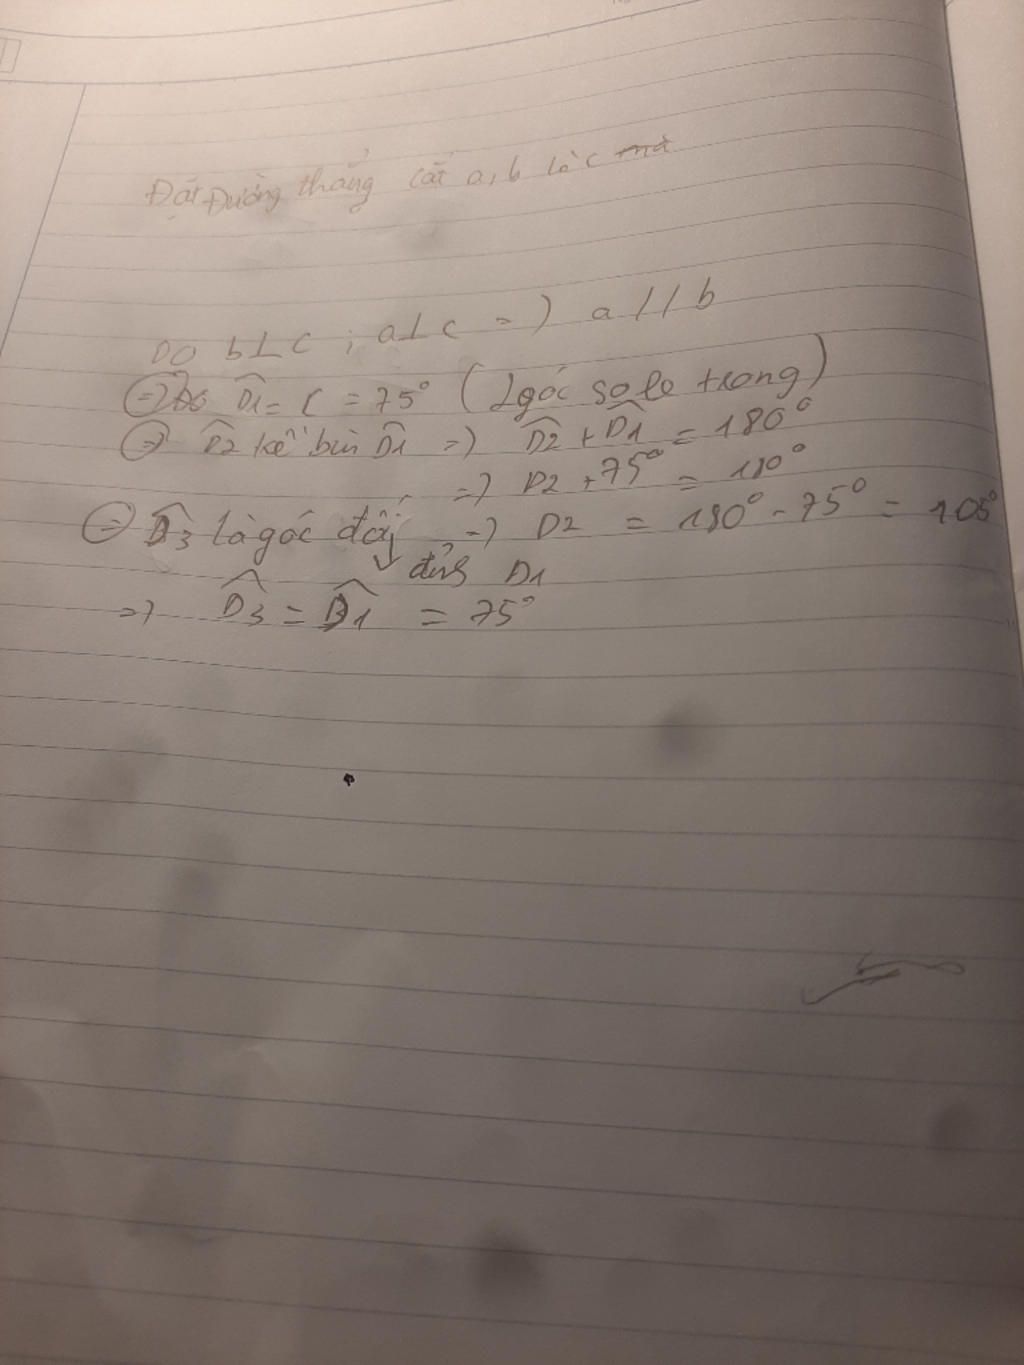 Đặt Đường thẳng cắt a, b là c mà
Do b⊥c ; a⊥c => a // b
=> Do D̂1 = C = 75° (2 góc so le trong)
=> D̂2 kề bù D̂1 => D̂2 + D̂1 = 180°
=> D2 + 75° = 180°
=> D̂3 là góc đối => D2 = 180° - 75° = 105°
đỉnh D1
=> D̂3 = D̂1 = 75°